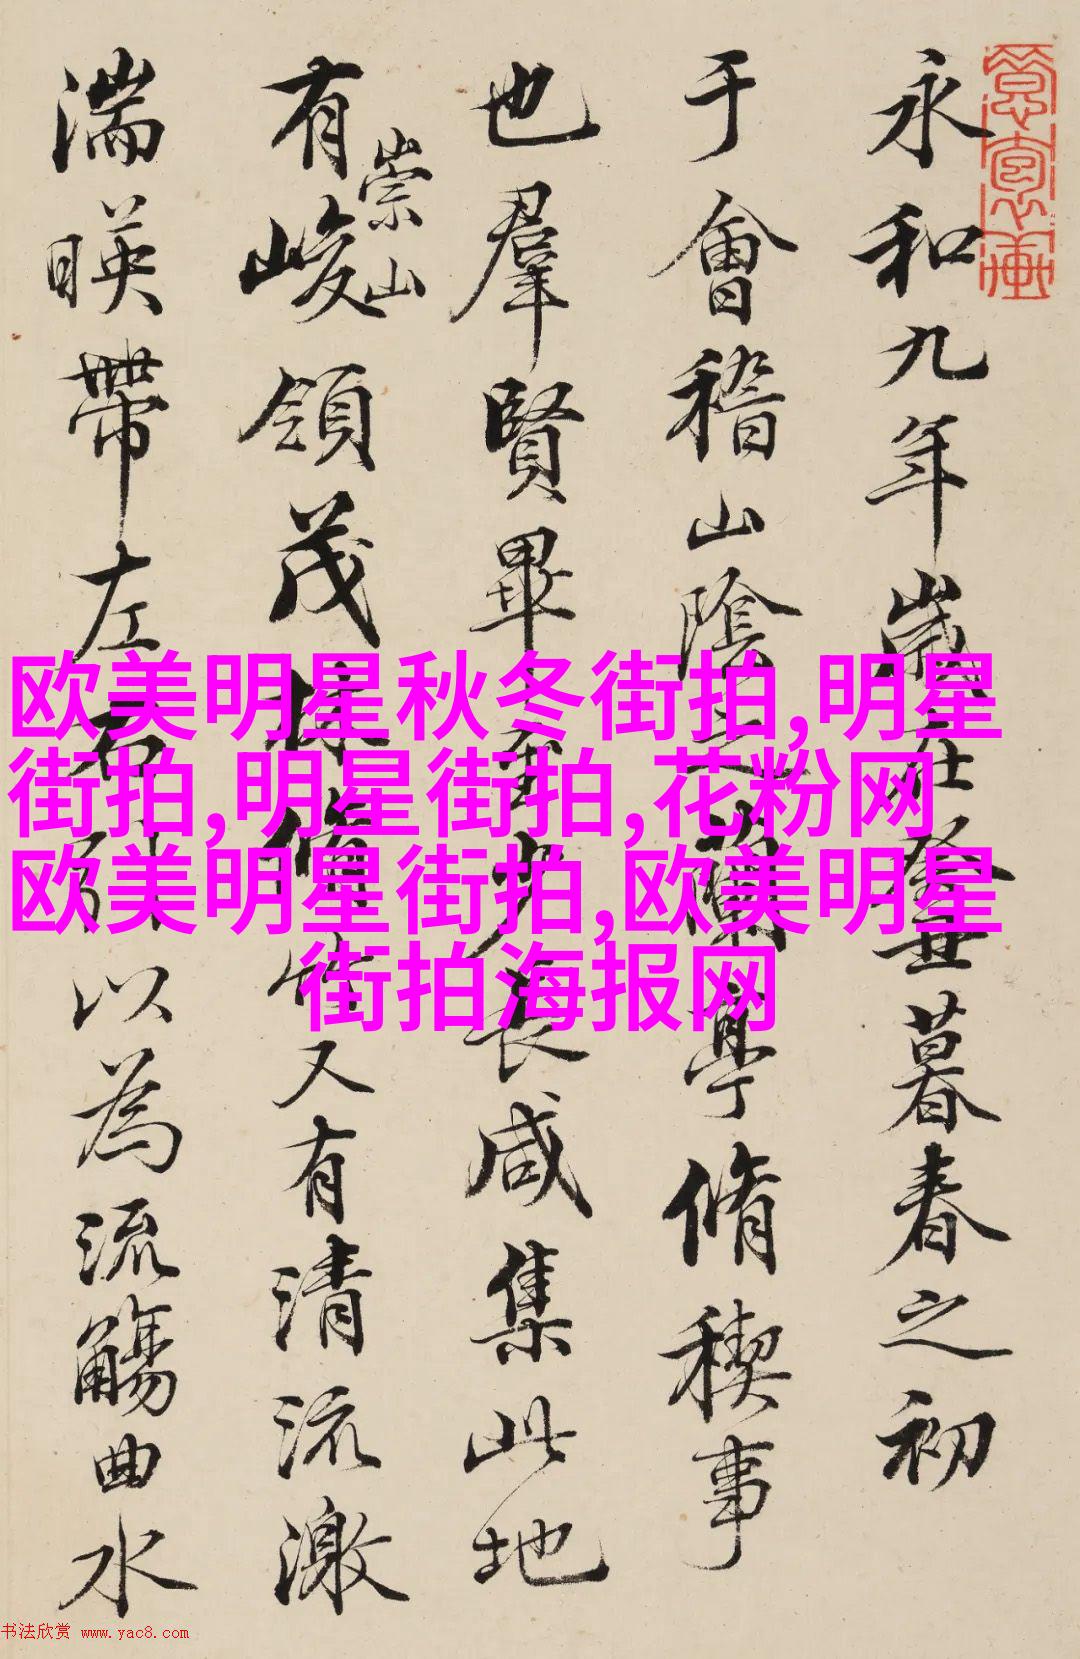 永和九年歲在癸丑暮春之初
于會稽山陰之蘭亭脩稧事
也羣賢畢至少長咸集此地
有崇山峻領茂林脩竹又有清流激
湍暎帶左右引以為流觴曲水
欧美明星秋冬街拍,明星
街拍,明星街拍,花粉网
欧美明星街拍,欧美明星
街拍海报网
书法欣赏 www.yac8.com